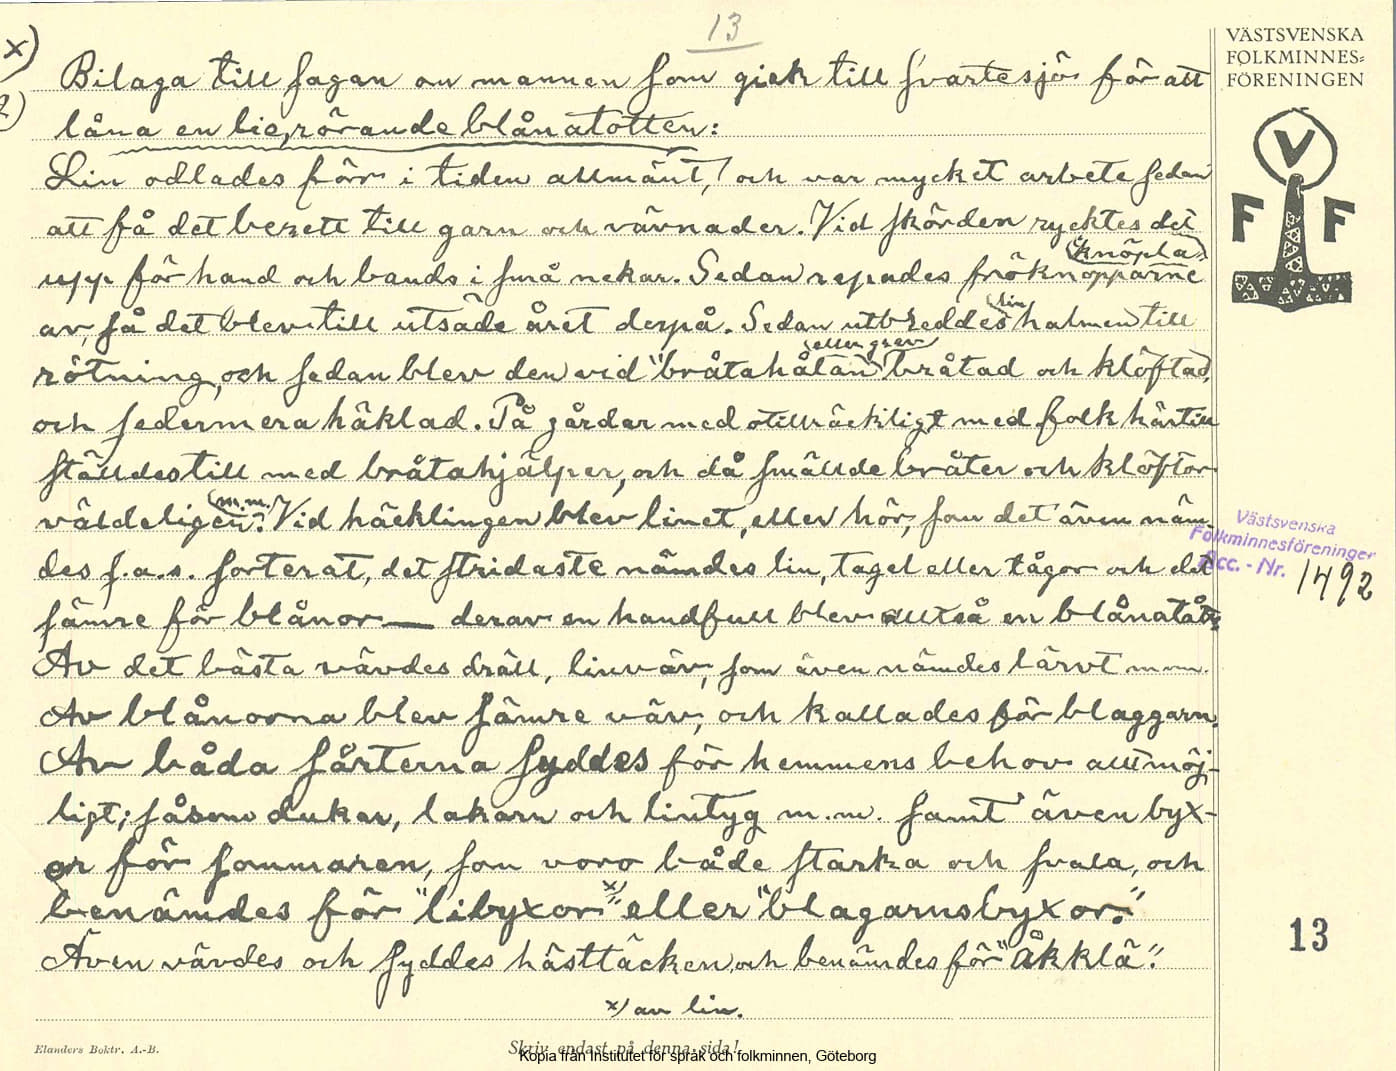 13
x)
2)
Bilaga till sagan om mannen som gick till svartesjö för att
låna en lie, rörande blånatotten:
Lin odlades förr i tiden allmänt, och var mycket arbete sedan
att få det berett till garn och vävnader. Vid skörden rycktes det
knöpla-
upp för hand och bands i små nekar. Sedan repades fröknopparne
lin
av, så det blev till utsäde året derpå. Sedan utbreddes halmen till
eller grav
rötning, och sedan blev den vid "bråtahålan" bråtad och klöftad,
och sedermera häklad. På gårdar med otillräckligt med folk härtill
ställdes till med bråtahjälper, och då smällde bråter och klöftor
m.m.
väldeligen. Vid häcklingen blev linet, eller hör, som det även näm-
des s.a.s. sorterat, det stridaste nämdes lin, tagel eller tågor och det
sämre för blånor — derav en handfull blev alltså en blånatått.
Av det bästa vävdes dräll, linväv, som även nämdes lärvt m.m.
Av blånorna blev sämre väv, och kallades för blaggarn.
Av båda sårterna syddes för hemmens behov allt möj-
ligt; såsom dukar, lakan och lintyg m.m. samt även byx-
or för sommaren, som voro både starka och svala, och
benämdes för "libyxor" x) eller "blagarnsbyxor."
Även vävdes och syddes hästtäcken och benämdes för "åkklä".
x) av lin.
VÄSTSVENSKA
FOLKMINNES=
FÖRENINGEN
V
F F
Västsvenska
Folkminnesföreningen
Acc. - Nr. 1492
13
Elanders Boktr. A.-B.
Skriv endast på denna sida!
Kopia från Institutet för språk och folkminnen, Göteborg